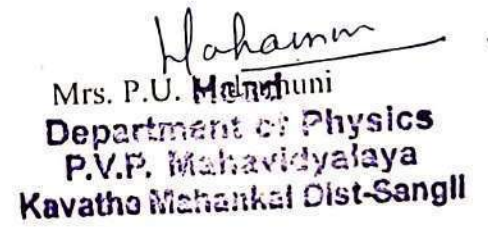 Mrs. P.U.
Head
Department of Physics
P.V.P. Mahavidyalaya
Kavathe Mahankal Dist-Sangli